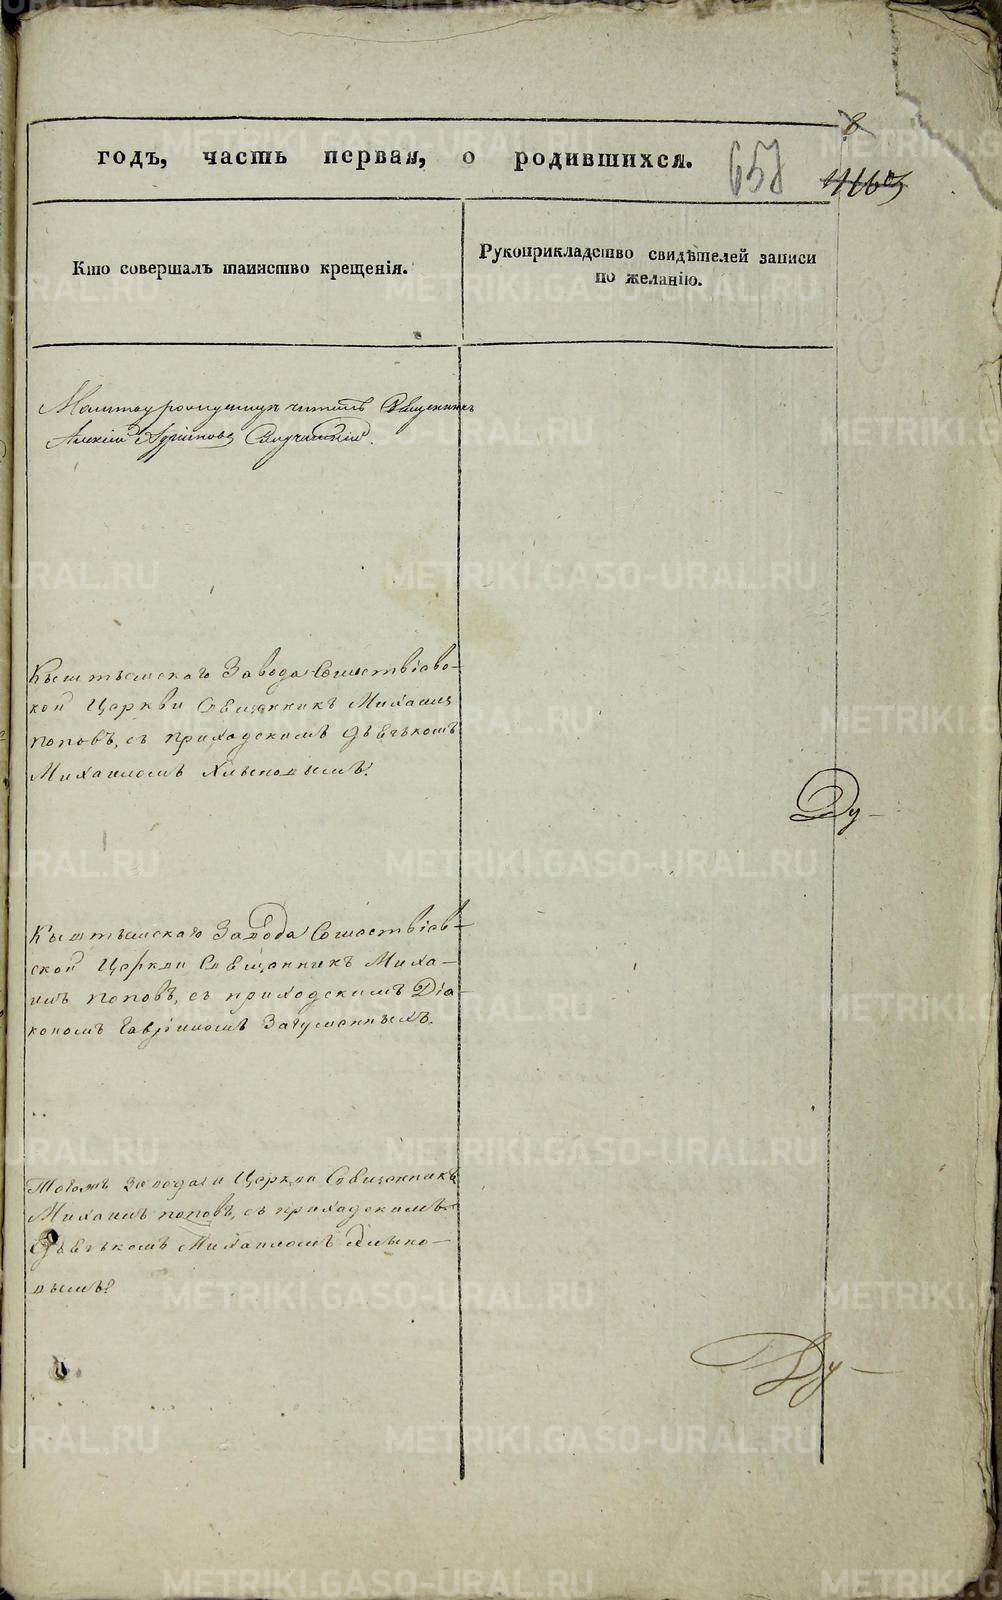 годъ, часть первая, о родившихся.
658
Кто совершалъ таинство крещенія.
Рукоприкладство свидѣтелей записи
по желанію.
Молитву родильницѣ читалъ Священникъ
Алексій
Кыштымскаго Завода Сошествіевс-
кой Церкви Священникъ Михаилъ
Поповъ, съ приходскимъ дьячкомъ
Михаиломъ Хлыновымъ.
Кыштымскаго Завода Сошествіев-
ской Церкви Священникъ Миха-
илъ Поповъ, съ приходскимъ Діа-
кономъ Гавріиломъ Загуменныхъ.
Тогожъ завода и Церкви Священникъ
Михаилъ Поповъ, съ приходскимъ
Дьячкомъ Михаиломъ Хлыно-
вымъ.
METRIKI.GASO-URAL.RU